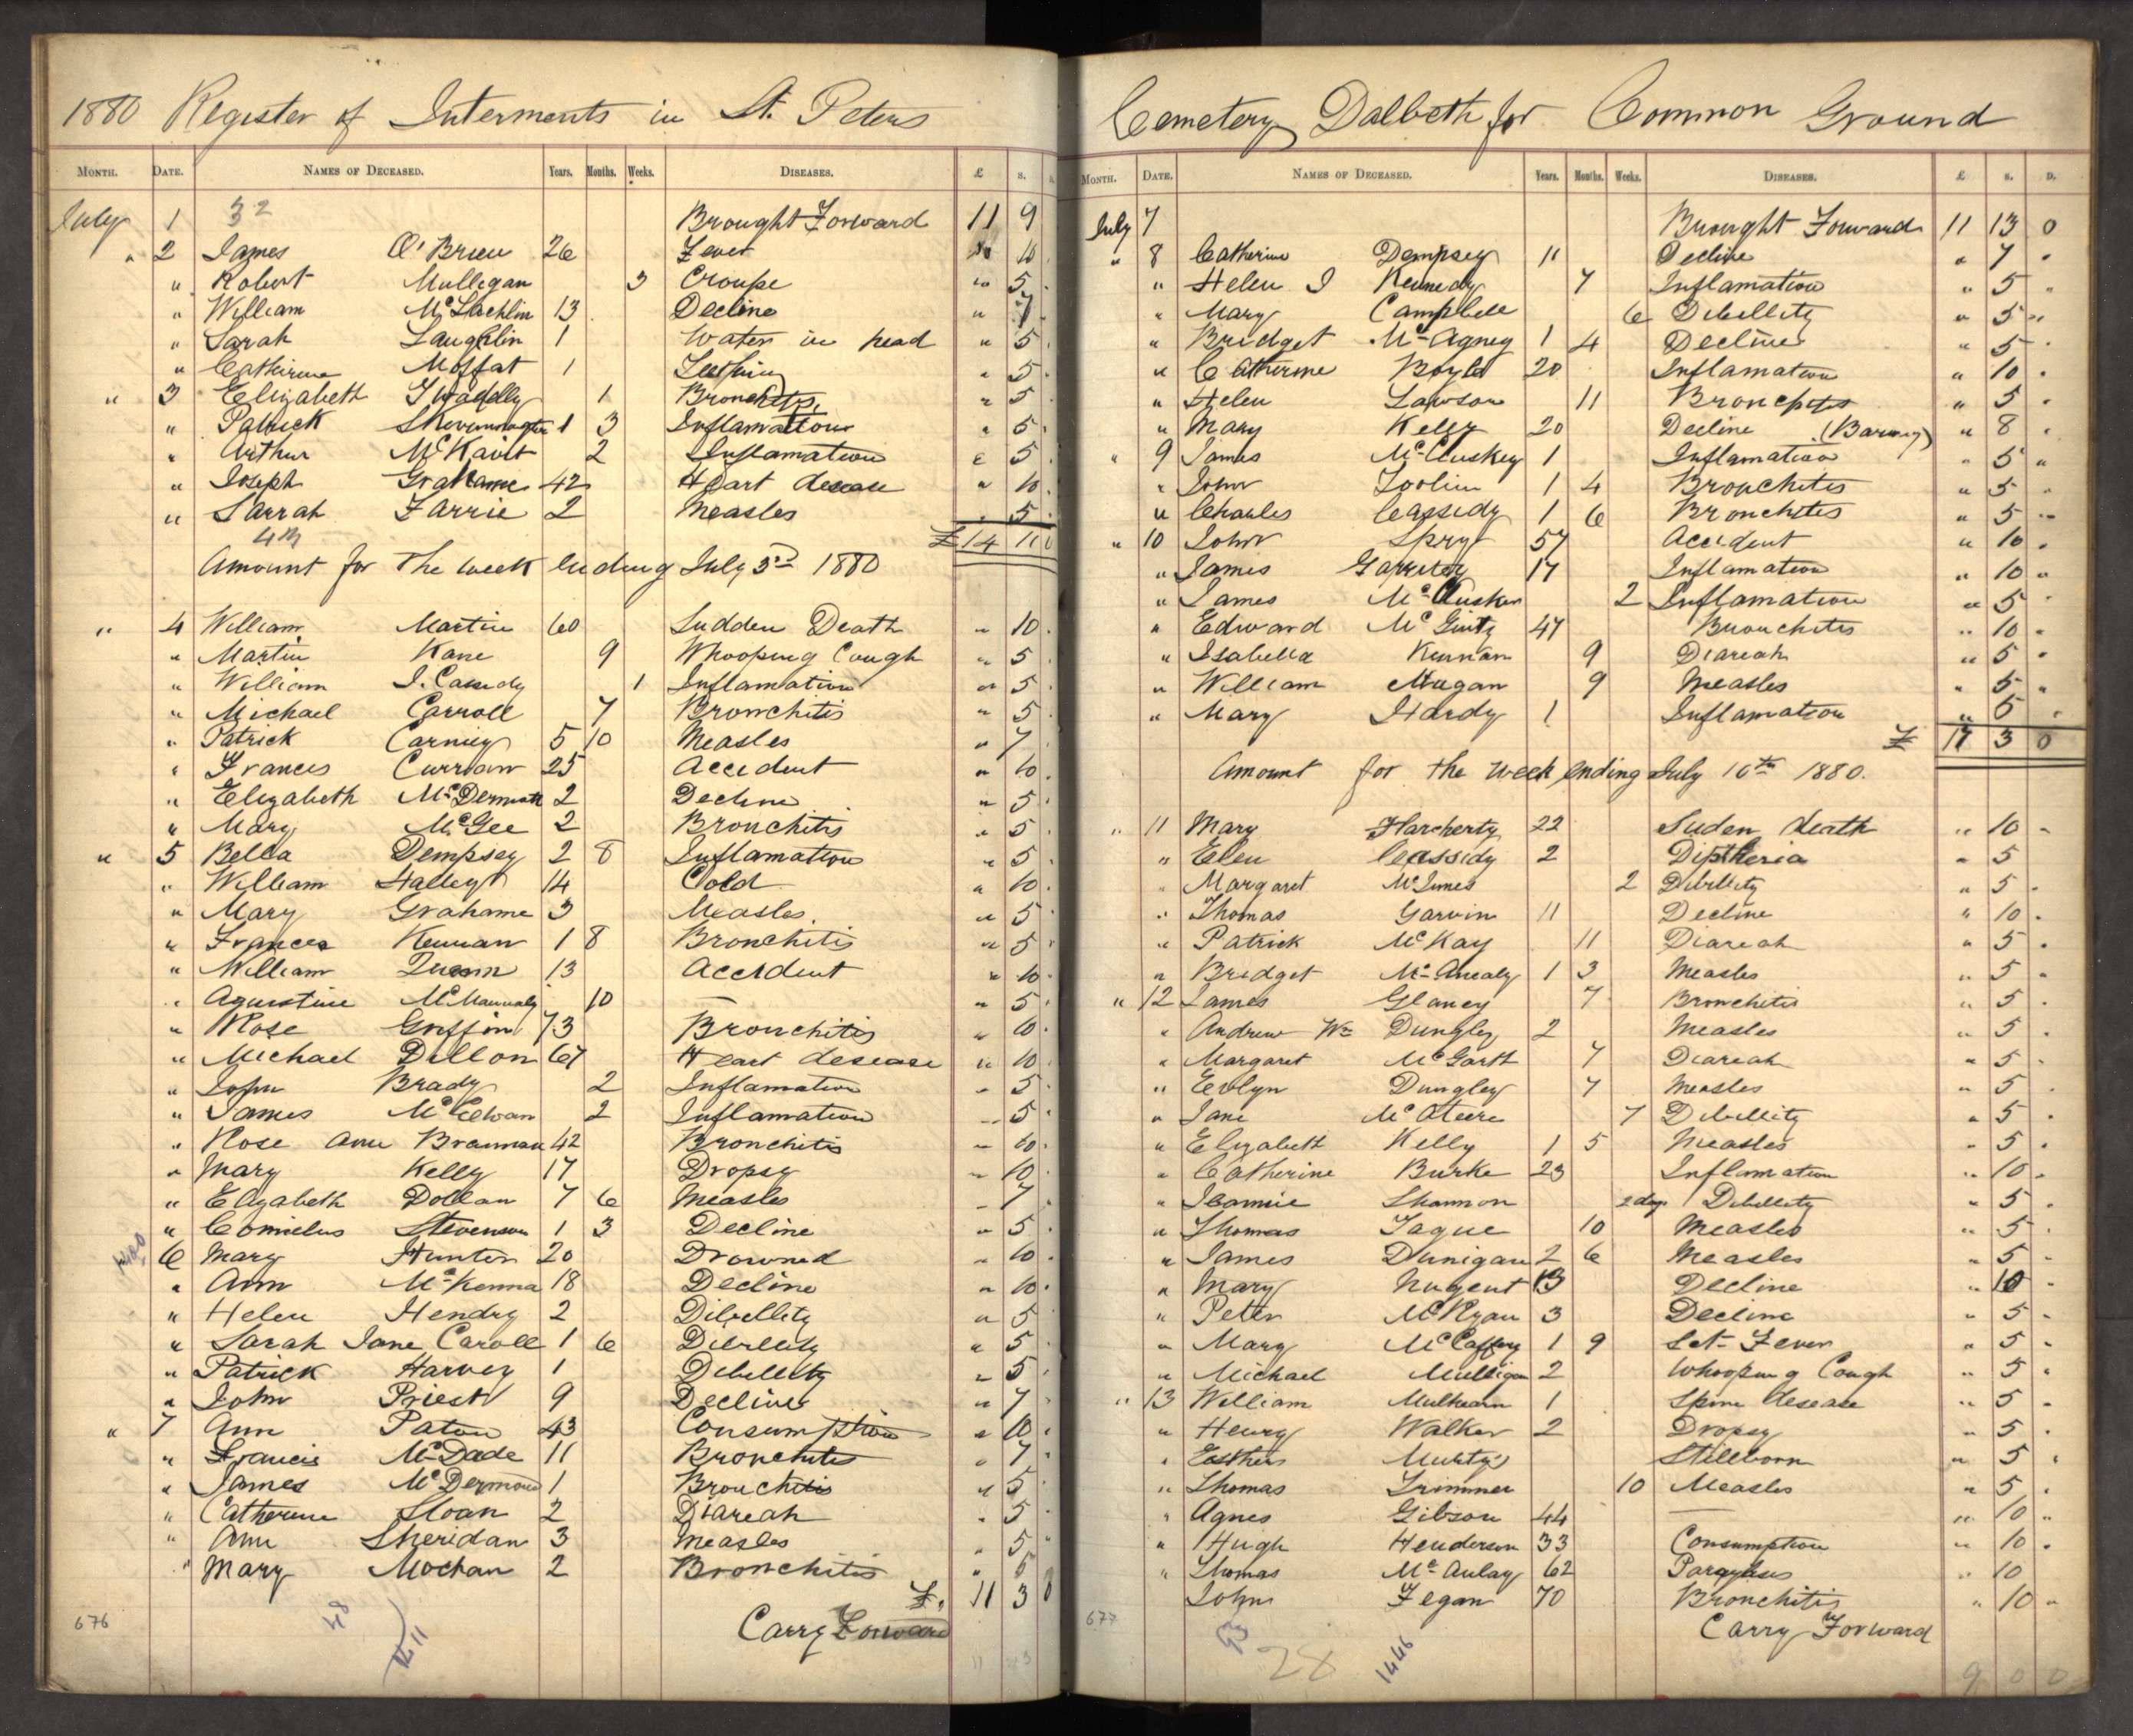 1880 Register of Interments in St. Peters
MONTH. DATE. NAMES OF DECEASED. Years. Months. Weeks. DISEASES. £ S.
July 1 32 Brought Forward 11 9
" 2 James O'Brien 26 Fever 10
" Robert Mulligan 3 Croupe " 5
" William McLachlin 13 Decline " 7
" Sarah Laughlin 1 Water in head " 5
" Catherine Moffat 1 Teething " 5
" 3 Elizabeth 1 Bronchitis " 5
" Patrick 1 3 Inflamation " 5
" Arthur 2 Inflamation " 5
" Joseph Grahame 42 Heart desease " 10
" Sarrah Farrie 2 Measles " 5
4th £ 14 11 0
Amount for the week Ending July 3rd 1880
" 4 William Martin 60 Sudden Death " 10
" Martin Kane 9 Whooping Cough " 5
" William J. Cassidy 1 Inflamation " 5
" Michael Carroll 7 Bronchitis " 5
" Patrick Carney 5 10 Measles " 7
" Frances Curran 25 Accident " 10
" Elizabeth McDermott 2 Decline " 5
" Mary McGee 2 Bronchitis " 5
" 5 Bella Dempsey 2 8 Inflamation " 5
" William 14 Cold " 10
" Mary Grahame 3 Measles. " 5
" Frances Keenan 1 8 Bronchitis " 5
" William Queen 13 Accident " 10
" Agustine 10 — " 5
" Rose Griffin 73 Bronchitis " 10
" Michael Dillon 67 Heart desease " 10
" John Brady 2 Inflamation " 5
" James 2 Inflamation " 5
" Rose Ann Brannan 42 Bronchitis " 10
" Mary Kelly 17 Dropsy " 10
" Elizabeth Dollan 7 6 Measles " 7
" Cornelius Stevenson 1 3 Decline " 5
6 Mary Hunter 20 Drowned " 10
" Ann McKenna 18 Decline " 10
" Helen Hendry 2 Dibellity " 5
" Sarah Jane Caroll 1 6 Dibellity " 5
" Patrick Harvey 1 Dibellity " 5
" John Priest 9 Decline " 7
" 7 Ann Paton 43 Consumption " 10
" Francis McDade 11 Bronchitis " 7
" James McDermond 1 Bronchitis " 5
" Catherine Sloan 2 Diareah " 5
" Ann Sheridan 3 Measles " 5
" Mary Mochan 2 Bronchitis " 5
£. 11 3 0
676 48 Carry Forward
Cemetery Dalbeth for Common Ground
MONTH. DATE. NAMES OF DECEASED. Years. Months. Weeks. DISEASES. £ S. D.
July 7 Brought Forward 11 13 0
" 8 Catherine Dempsey 11 Decline " 7 "
" Helen J Kennedy 7 Inflamation " 5 "
" Mary Campbell 6 Dibellity " 5 "
" Bridget McAgney 1 4 Decline " 5
" Catherine Boyle 20 Inflamation " 10
" Helen Lawson 11 Bronchitis " 5
" Mary Kelly 20 Decline (Barony) " 8
" 9 James McCluskey 1 Inflamation " 5 "
" John 1 4 Bronchitis " 5 "
" Charles Cassidy 1 6 Bronchitis " 5 "
" 10 John Spry 57 Accident " 10
" James 17 Inflamation " 10 "
" James McCusker 2 Inflamation " 5
" Edward McGinty 47 Bronchites " 10 "
" Isabella Keenan 9 Diareah " 5 "
" William Magan 9 Measles " 5 "
" Mary Hardy 1 Inflamation " 5
£ 17 3 0
Amount for the week Ending July 10th 1880.
" 11 Mary Harcherty 22 Suden death " 10 "
" Ellen Cassidy 2 Diptheria " 5
" Margaret McInnes 2 Dibellity " 5
" Thomas Garvin 11 Decline " 10
" Patrick McKay 11 Diareah " 5
" Bridget McAnealy 1 3 Measles " 5
" 12 James Glancy 7 Bronchitis " 5
" Andrew Wm Dungley 2 Measles " 5
" Margaret McGarth 7 Diareah " 5
" Evlyn Dungley 7 Measles " 5
" Jane McAteere 7 Dibellity " 5
" Elizabeth Kelly 1 5 Measles " 5
" Catherine Burke 23 Inflamation " 10
" Jeannie Shannon 2 days Dibellity " 5
" Thomas Tague 10 Measles " 5
" James Dunigan 2 6 Measles " 5
" Mary Nugent 13 Decline " 10
" Peter McRyan 3 Decline " 5
" Mary McCaffery 1 9 Sct- Fever " 5
" Michael Mulligan 2 Whooping Cough " 5
" 13 William Mulhearn 1 Spine desease " 5
" Henry Walker 2 Dropsy " 5
" Easther Murty 5 Stillborn " 5
" Thomas Trimmer 10 Measles " 5
" Agnes Gibson 44 — " 10 "
" Hugh Henderson 33 Consumption " 10
" Thomas McAulay 62 Paraylises " 10
John Fegan 70 Bronchitis " 10 "
677 Carry Forward
28 1446
9 0 0